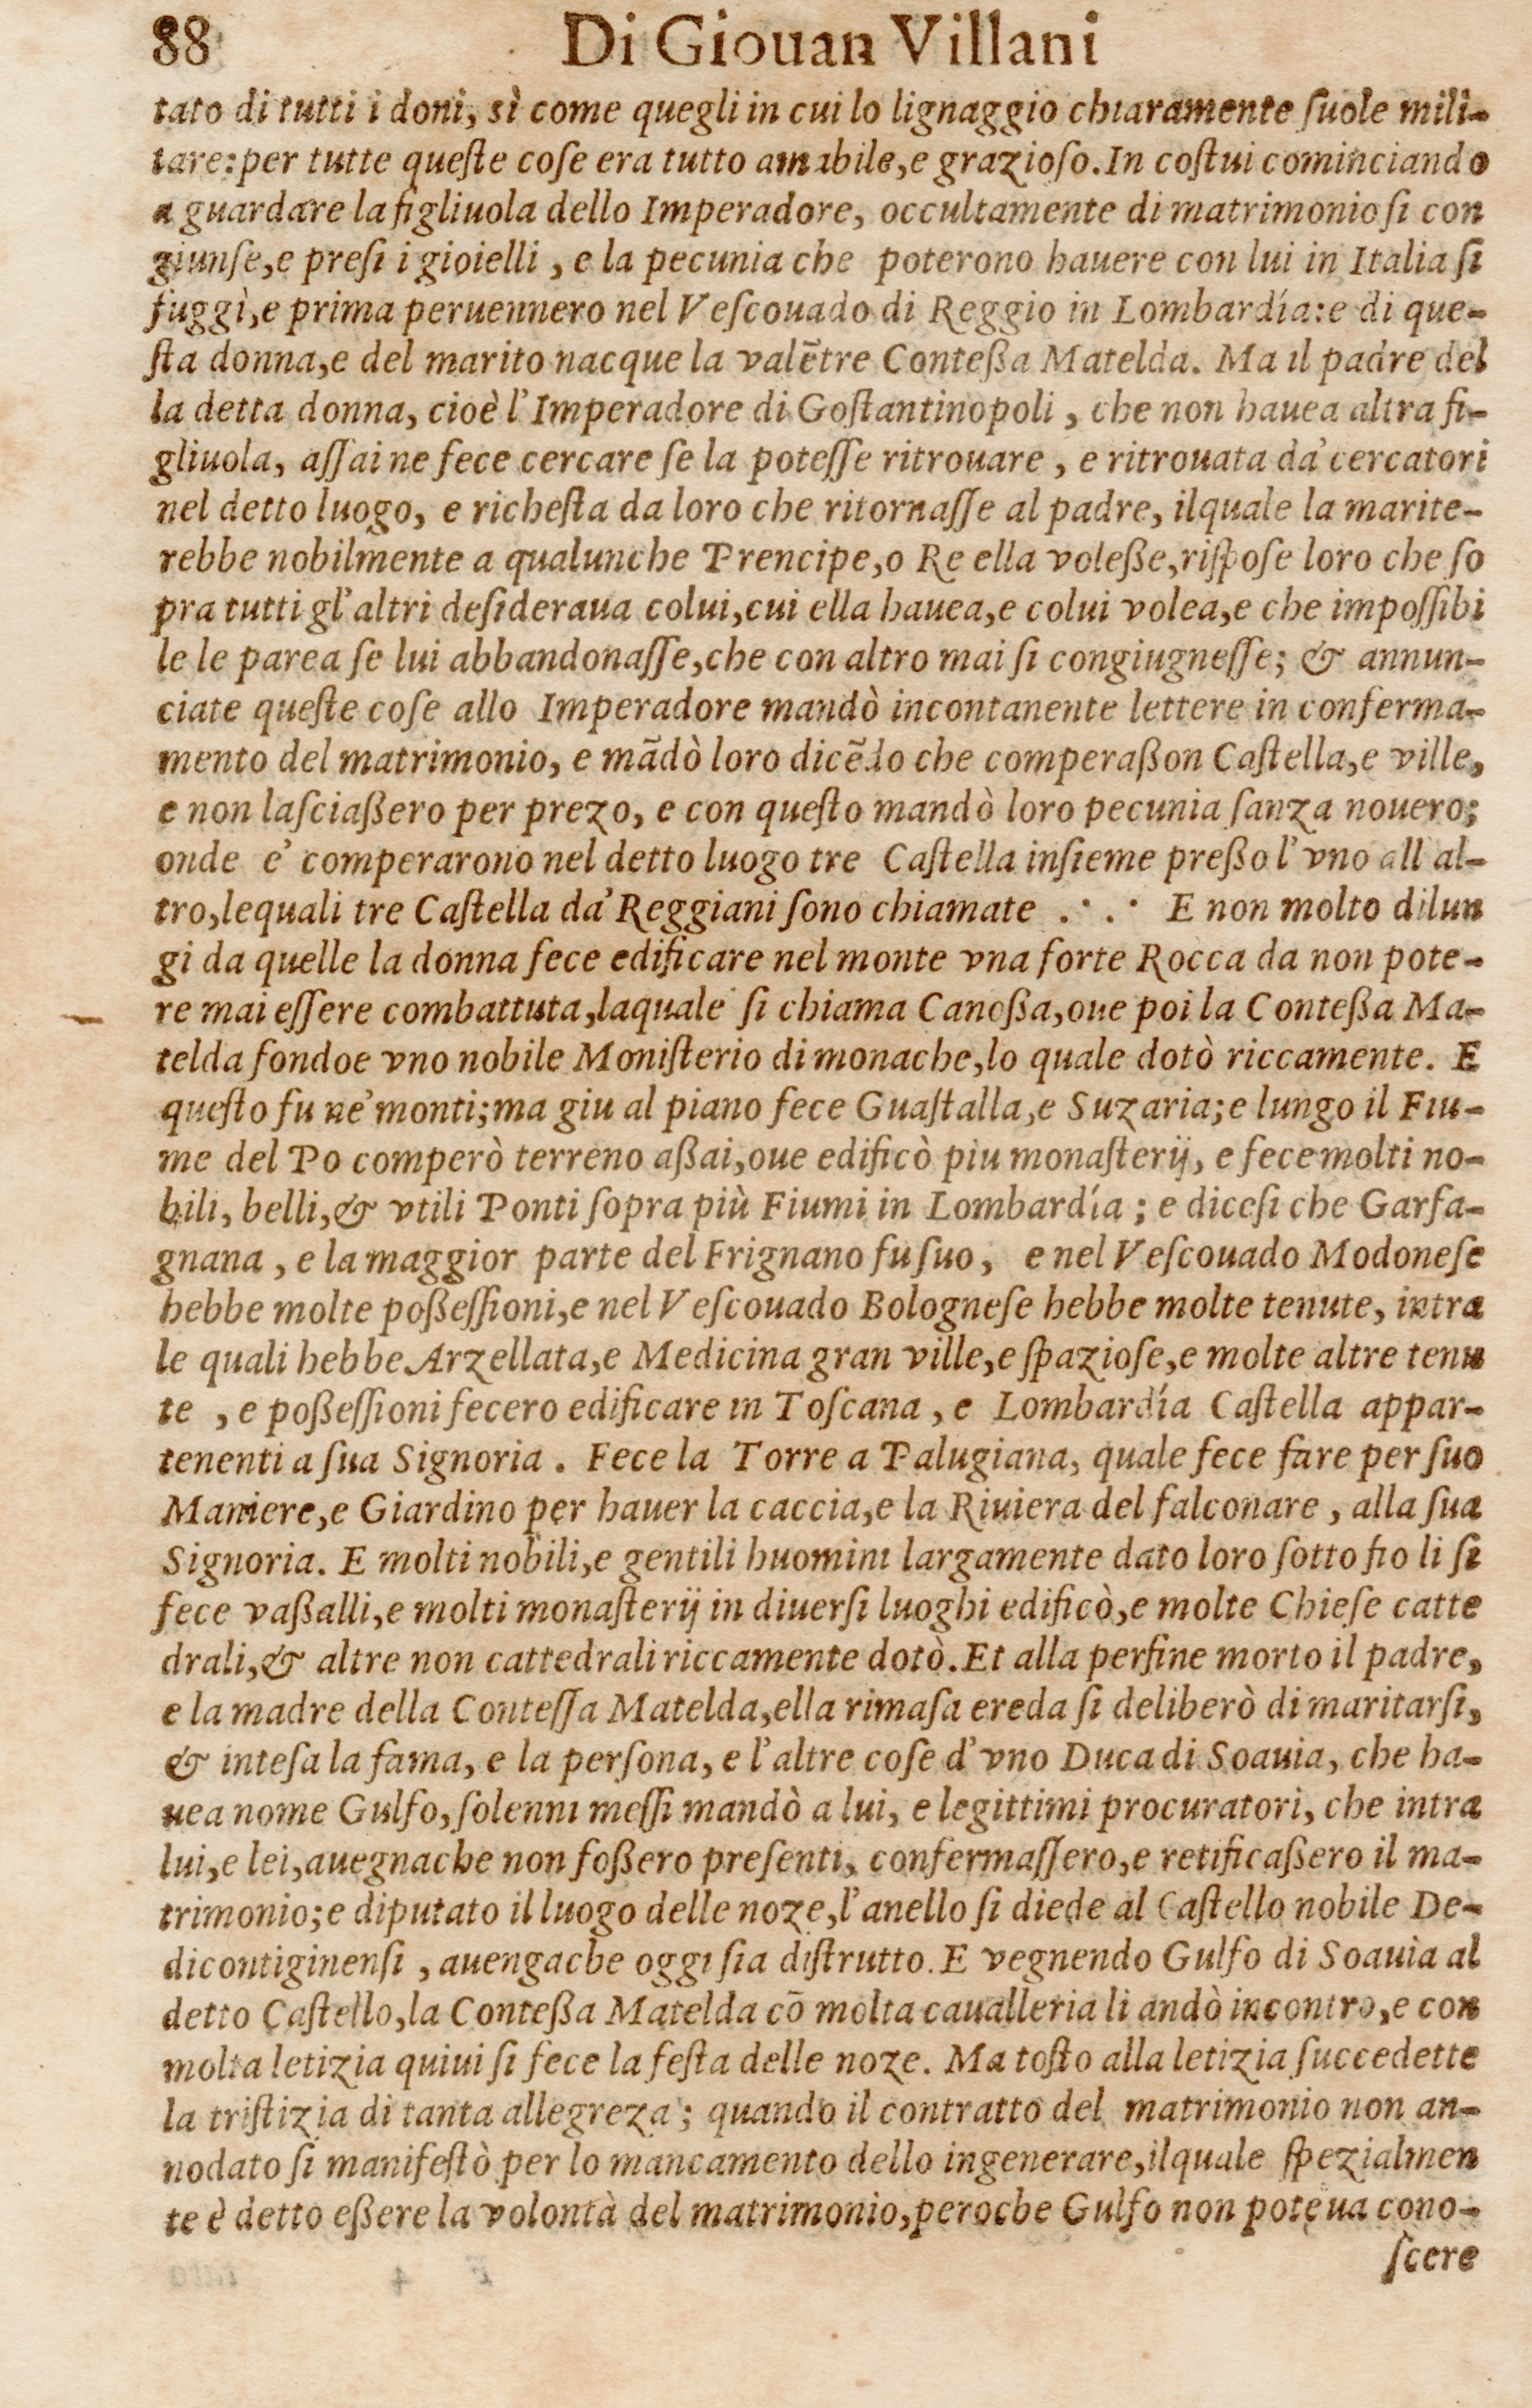 88 Di Giouan Villani
tato di tutti i doni, sì come quegli in cui lo lignaggio chiaramente ſuole mili-
tare: per tutte queſte coſe era tutto amabile, e grazioſo. In coſtui cominciando
a guardare la figliuola dello Imperadore, occultamente di matrimonio ſi con
giunſe, e preſi i gioielli, e la pecunia che poterono hauere con lui in Italia ſi
fuggì, e prima peruennero nel Veſcouado di Reggio in Lombardía: e di que-
ſta donna, e del marito nacque la valētre Conteßa Matelda. Ma il padre del
la detta donna, cioè l'Imperadore di Goſtantinopoli, che non hauea altra fi-
gliuola, aſſai ne fece cercare ſe la poteſſe ritrouare, e ritrouata da' cercatori
nel detto luogo, e richeſta da loro che ritornaſſe al padre, ilquale la marite-
rebbe nobilmente a qualunche Prencipe, o Re ella voleße, riſpoſe loro che ſo
pra tutti gl'altri deſideraua colui, cui ella hauea, e colui volea, e che impoſſibi
le le parea ſe lui abbandonaſſe, che con altro mai ſi congiugneſſe; & annun-
ciate queſte coſe allo Imperadore mandò incontanente lettere in conferma-
mento del matrimonio, e mādò loro dicēdo che comperaßon Caſtella, e ville,
e non laſciaßero per prezo, e con queſto mandò loro pecunia ſanza nouero;
onde e' comperarono nel detto luogo tre Caſtella inſieme preßo l'vno all al-
tro, lequali tre Caſtella da' Reggiani ſono chiamate .·.· E non molto dilun
gi da quelle la donna fece edificare nel monte vna forte Rocca da non pote-
re mai eſſere combattuta, laquale ſi chiama Canoßa, oue poi la Conteßa Ma-
telda fondoe vno nobile Moniſterio di monache, lo quale dotò riccamente. E
queſto fu ne' monti; ma giu al piano fece Guaſtalla, e Suzaria; e lungo il Fiu-
me del Po comperò terreno aßai, oue edificò piu monaſterij, e fece molti no-
bili, belli, & vtili Ponti ſopra più Fiumi in Lombardía; e diceſi che Garfa-
gnana, e la maggior parte del Frignano fu ſuo, e nel Veſcouado Modoneſe
hebbe molte poßeſſioni, e nel Veſcouado Bologneſe hebbe molte tenute, intra
le quali hebbe Arzellata, e Medicina gran ville, e ſpazioſe, e molte altre tenu
te, e poßeſſioni fecero edificare in Toſcana, e Lombardía Caſtella appar-
tenenti a ſua Signoria. Fece la Torre a Palugiana, quale fece fare per ſuo
Maniere, e Giardino per hauer la caccia, e la Riuiera del falconare, alla ſua
Signoria. E molti nobili, e gentili huomini largamente dato loro ſotto fio li ſi
fece vaßalli, e molti monaſterij in diuerſi luoghi edificò, e molte Chieſe catte
drali, & altre non cattedrali riccamente dotò. Et alla perfine morto il padre,
e la madre della Conteſſa Matelda, ella rimaſa ereda ſi deliberò di maritarſi,
& inteſa la fama, e la perſona, e l'altre coſe d'vno Duca di Soauia, che ha-
uea nome Gulfo, ſolenni meſſi mandò a lui, e legittimi procuratori, che intra
lui, e lei, auegnache non foßero preſenti, confermaſſero, e retificaßero il ma-
trimonio; e diputato il luogo delle noze, l'anello ſi diede al Caſtello nobile De-
dicontiginenſi, auengache oggi ſia diſtrutto. E vegnendo Gulfo di Soauia al
detto Caſtello, la Conteßa Matelda cō molta caualleria li andò incontro, e con
molta letizia quiui ſi fece la feſta delle noze. Ma toſto alla letizia ſuccedette
la triſtizia di tanta allegreza; quando il contratto del matrimonio non an-
nodato ſi manifeſtò per lo mancamento dello ingenerare, ilquale ſpezialmen
te è detto eßere la volontà del matrimonio, peroche Gulfo non poteua cono-
ſcere